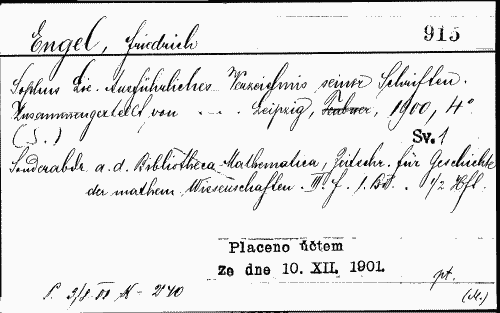 915
Engel, Friedrich
Sophus Lie. Ausführliches Verzeichnis seiner Schriften.
Zusammengestellt von . . . Leipzig, Teubner, 1900, 4°
(S.) Sv. 1
Sonderabdr. a. d. Bibliotheca Mathematica, Zeitschr. für Geschichte
der mathem. Wissenschaften. III. F. 1. Bd. . 1/2 Hft.
Placeno účtem
Ze dne 10. XII. 1901.
pt.
(M.)